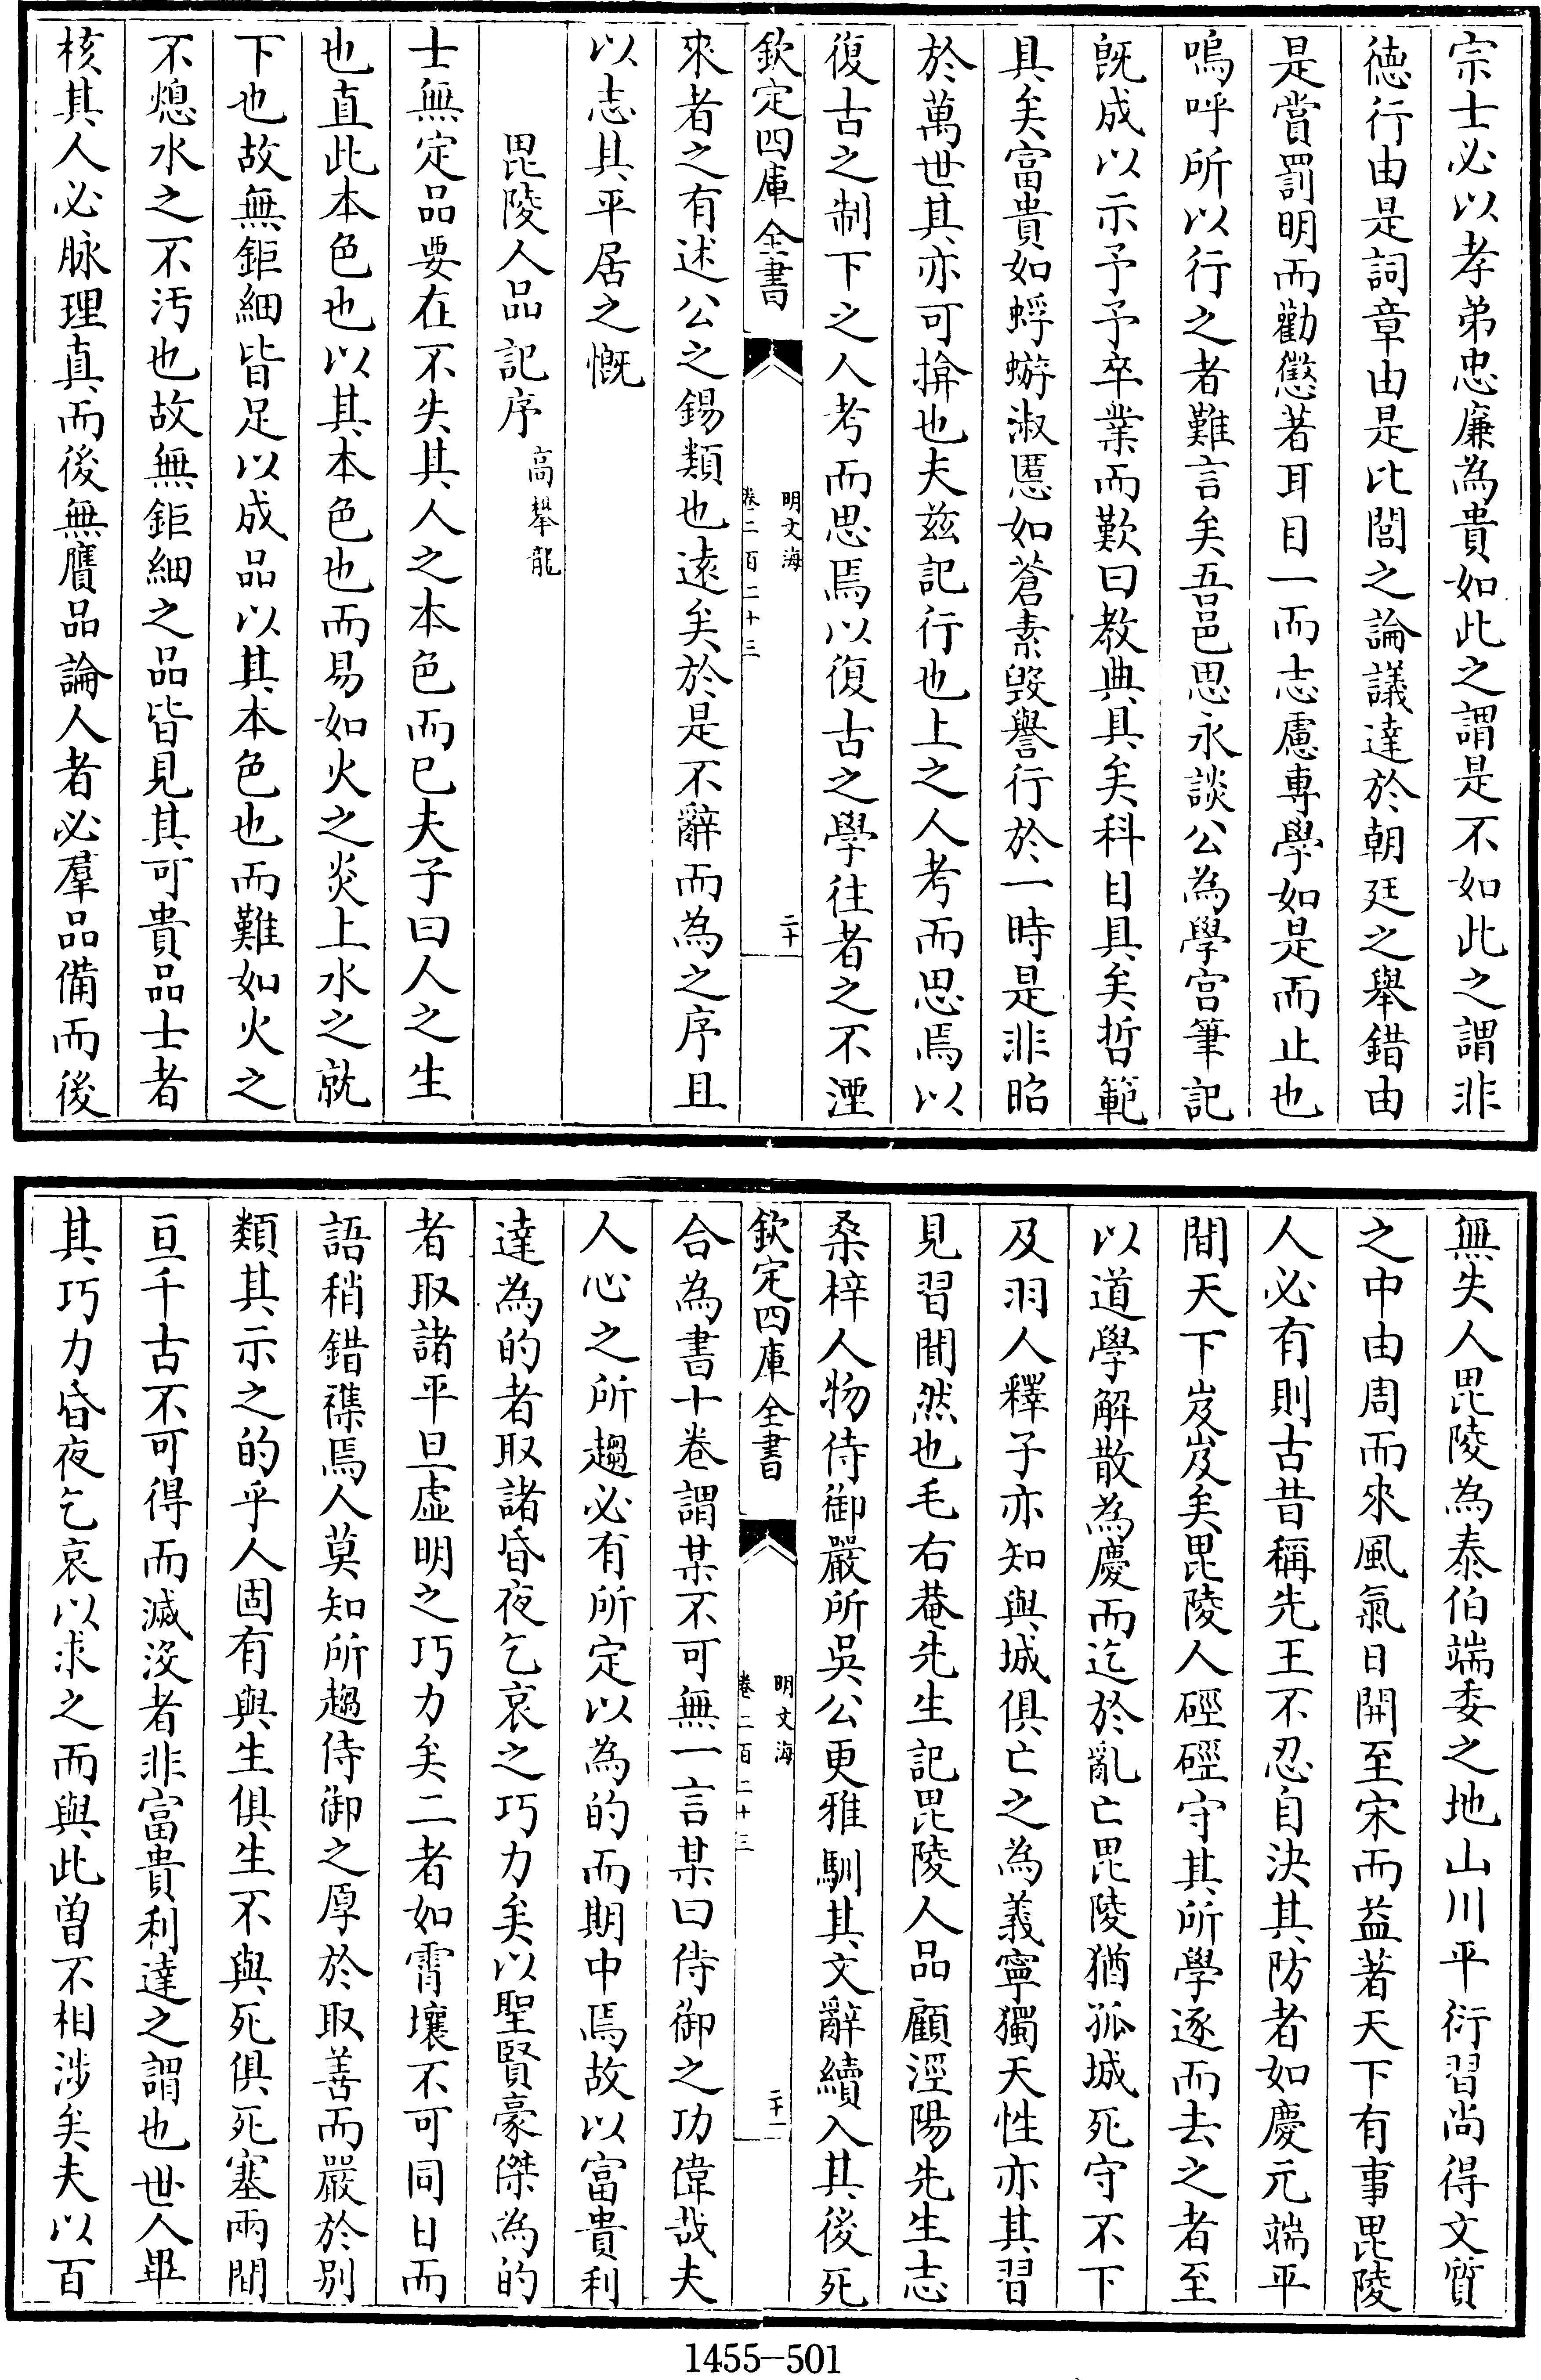 宗士必以孝弟忠廉為貴如此之謂是不如此之謂非
徳行由是詞章由是比閭之論議達於朝廷之舉錯由
是賞罰明而勸懲著耳目一而志慮專學如是而止也
嗚呼所以行之者難言矣吾邑思永談公為學宫筆記
既成以示予予卒業而歎曰教典具矣科目具矣哲範
具矣富貴如蜉蝣淑慝如蒼素毁譽行於一時是非昭
於萬世其亦可揜也夫兹記行也上之人考而思焉以
復古之制下之人考而思焉以復古之學往者之不湮
欽定四庫全書
明文海
卷二百二十三
二十
來者之有述公之錫類也逺矣於是不辭而為之序且
以志其平居之慨
毘陵人品記序 高攀龍
士無定品要在不失其人之本色而已夫子曰人之生
也直此本色也以其本色也而易如火之炎上水之就
下也故無鉅細皆足以成品以其本色也而難如火之
不熄水之不汚也故無鉅細之品皆見其可貴品士者
核其人必脉理真而後無贋品論人者必羣品備而後
無失人毘陵為泰伯端委之地山川平衍習尚得文質
之中由周而來風氣日開至宋而益著天下有事毘陵
人必有則古昔稱先王不忍自決其防者如慶元端平
間天下岌岌矣毘陵人硜硜守其所學逐而去之者至
以道學解散為慶而迄於亂亡毘陵猶孤城死守不下
及羽人釋子亦知與城俱亡之為義寧獨天性亦其習
見習聞然也毛右菴先生記毘陵人品顧涇陽先生志
桑梓人物侍御嚴所吳公更雅馴其文辭續入其後死
欽定四庫全書
明文海
卷二百二十三
二十一
合為書十卷謂某不可無一言某曰侍御之功偉哉夫
人心之所趨必有所定以為的而期中焉故以富貴利
達為的者取諸昏夜乞哀之巧力矣以聖賢豪傑為的
者取諸平旦虛明之巧力矣二者如霄壤不可同日而
語稍錯襍焉人莫知所趨侍御之厚於取善而嚴於别
類其示之的乎人固有與生俱生不與死俱死塞兩間
亘千古不可得而滅沒者非富貴利達之謂也世人畢
其巧力昏夜乞哀以求之而與此曾不相涉矣夫以百
1455-501